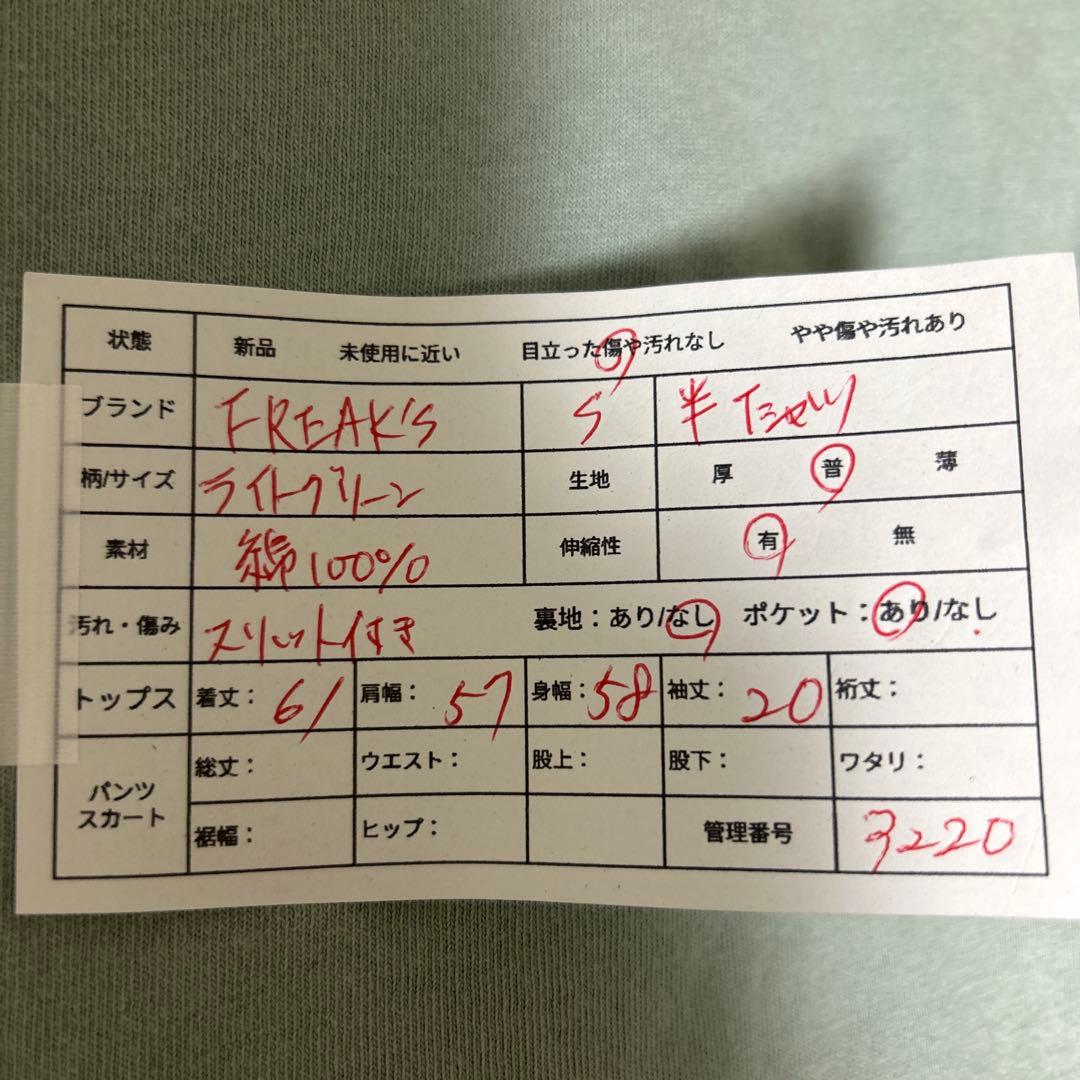 状態 新品 未使用に近い 目立った傷や汚れなし やや傷や汚れあり
ブランド FREAK'S S 半Tシャツ
柄/サイズ ライトグリーン 生地 厚 普 薄
素材 綿100% 伸縮性 有 無
汚れ・傷み スリット付き 裏地：あり/なし ポケット：あり/なし
トップス 着丈：61 肩幅：57 身幅：58 袖丈：20 裄丈：
パンツ スカート 総丈： ウエスト： 股上： 股下： ワタリ：
裾幅： ヒップ： 管理番号 3220